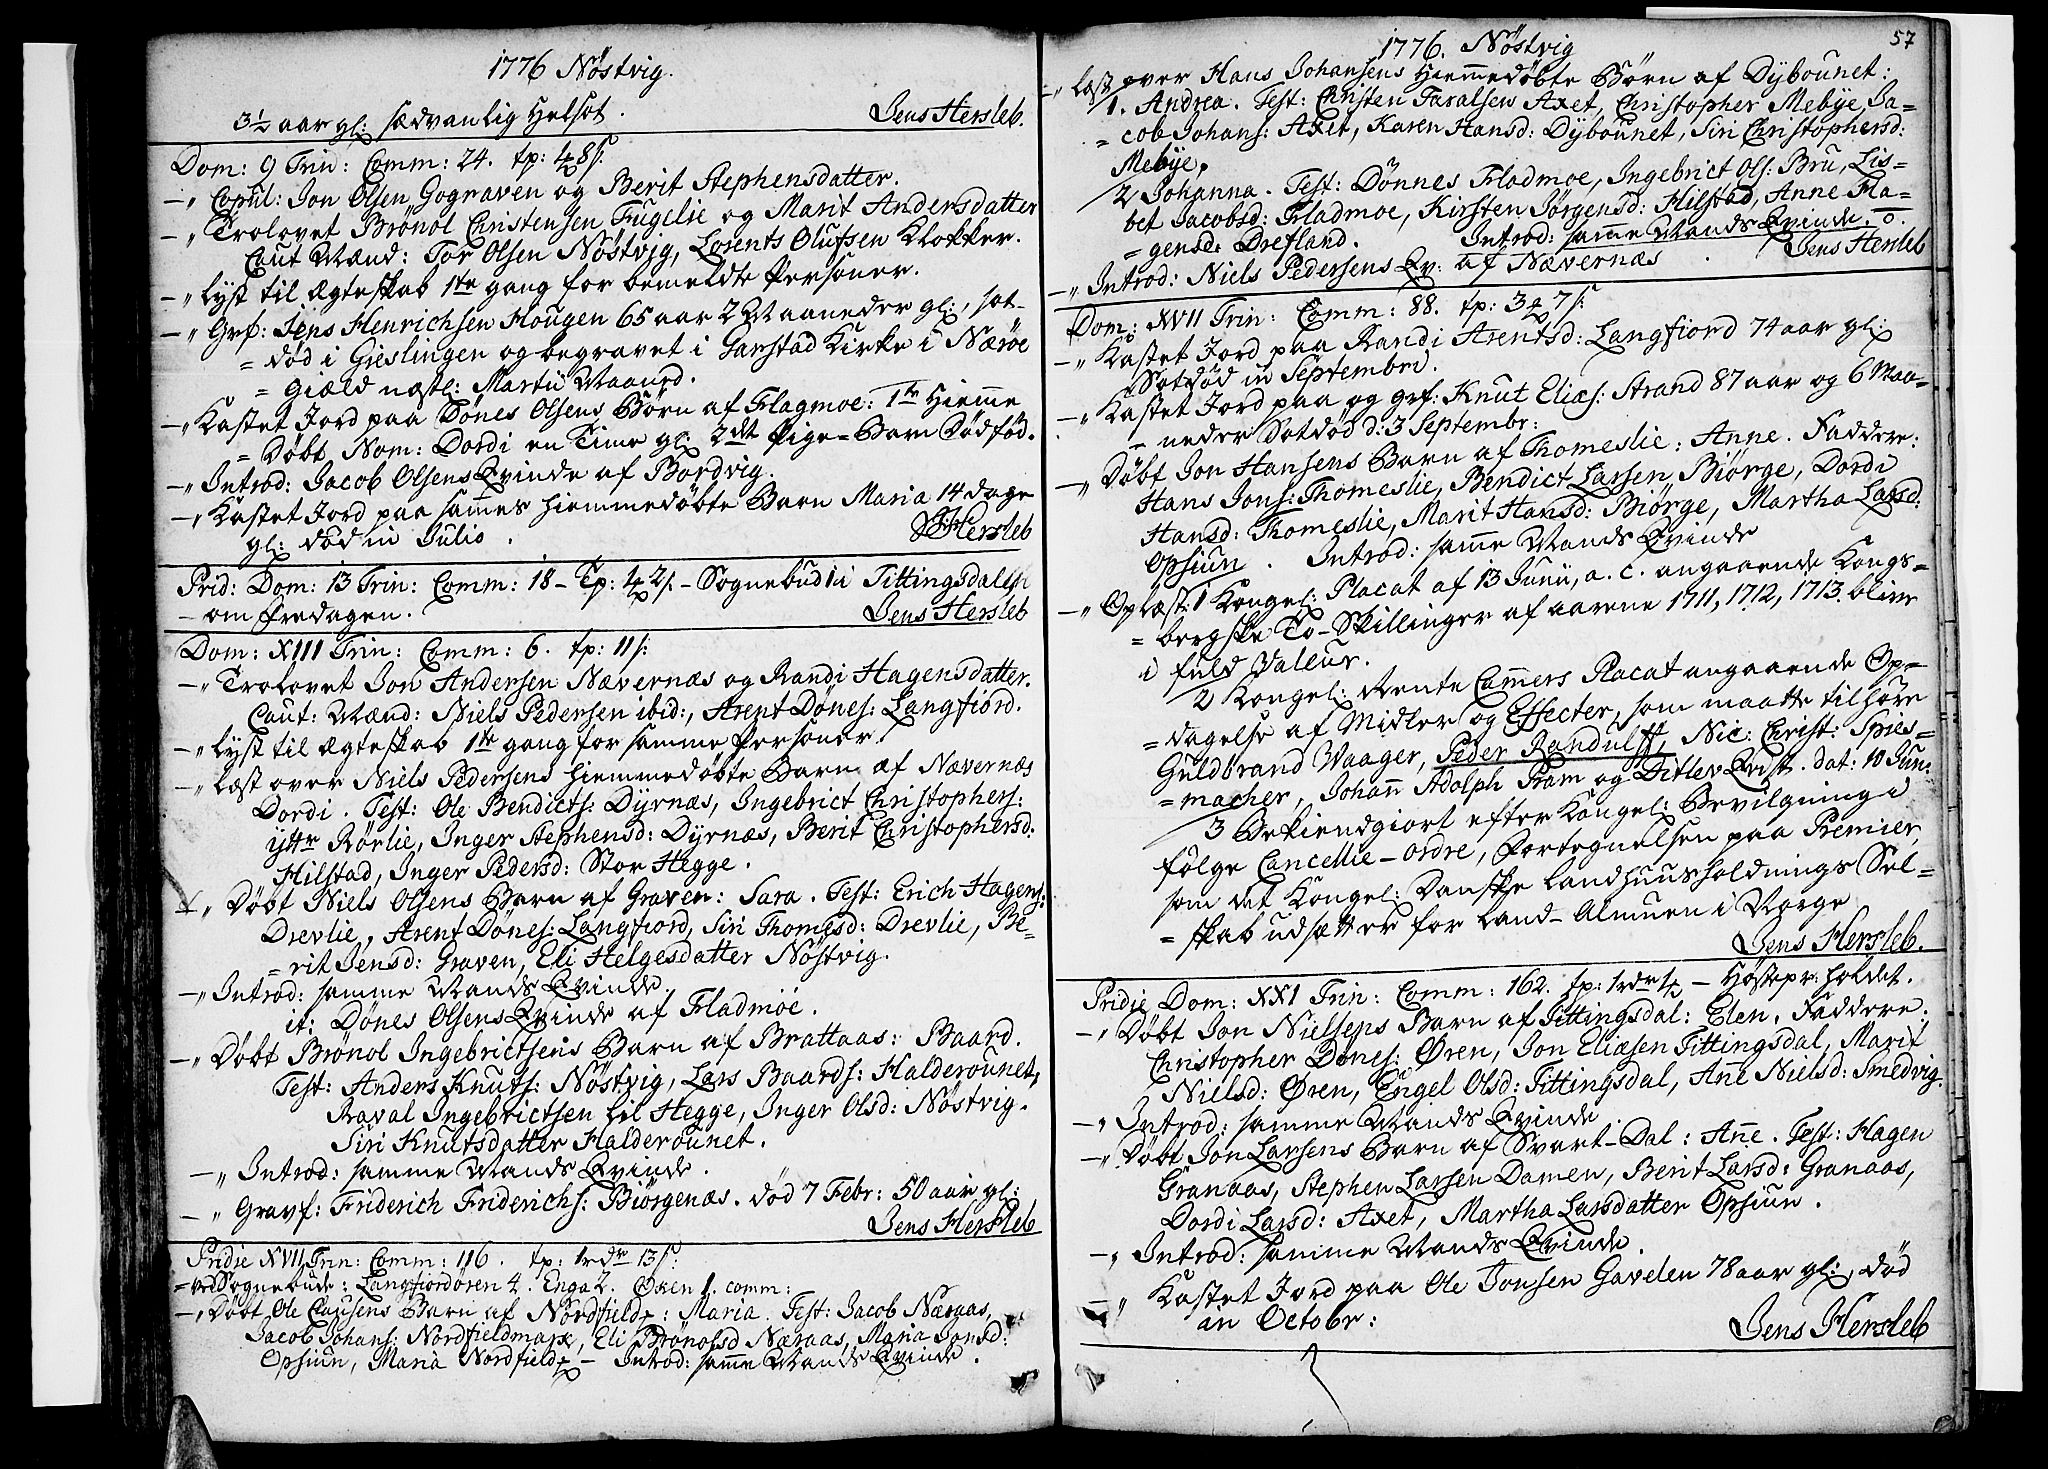 1776 Nöstvig.
3½ aar gl: sædvanlig Helsot. Jens Hersleb.
Dom: 9 Trin: Comm: 24. tp: 4 8 s:
-" Copul: Jon Olsen Gograven og Berit Stephensdatter.
-" Trolovet Brönol Christensen Fugelie og Marit Andersdatter
Caut Mænd: Tor Olsen Nöstvig, Lorents Olufsen Klokker.
-" Lyst til Ægteskab 1te gang for bemeldte Personer.
-" Grf: Jens Henrichsen Hougen 65 aar 2 Maaneder gl:, sot-
= död i Gieslingen og begravet i Garstad Kirke i Næröe
= Gield næstl: Martii Maaned.
-" Kastet Jord paa Dönes Olsens Börn af Flagmoe: 1te Hiemme
= Döbt, Nom: Dordi en Time gl: 2det Pige-Barn Dödföd.
-" Introd: Jacob Olsens Qvinde af Bordvig.
-" Kastet Jord paa sammes hiemmedöbte Barn Maria 14 dage
gl: död in Julio. JHersleb
Prid: Dom: 13 Trin: Comm: 18 - Tp: 4 2 s. - Sognebud 1 i Tittingsdalen
- om Fredagen. Jens Hersleb
Dom: XIII Trin: Comm: 6. tp: 11 s:
-" Trolovet Jon Andersen Nævernæs og Randi Hagensdatter.
Caut: Mænd: Niels Pedersen ibid:, Arent Dönes: Langfiord.
-" Lyst til Ægteskab 1te gang for samme Personer.
-" Læst over Niels Pedersens hiemmedöbte Barn af Nævernæs
Dordi. Test: Ole Bendicts: Dyrnæs, Ingebrict Christophers:
ytter Rörlie, Inger Stephensd: Dyrnæs, Berit Christophersd:
Hilstad, Inger Pedersd: Stor Hegge.
-" Döbt Niels Olsens Barn af Graven: Sara. Test: Erich Hagens:
Drevlie, Arent Dönes: Langfiord, Siri Thomesd: Drevlie, Be-
= rit Jensd: Graven, Eli Helgesdatter Nöstvig.
-" Introd: samme Mands Qvinde.
it: Dönes Olsens Qvinde af Fladmoe.
-" Döbt Brönol Ingebrictsens Barn af Brattaas: Baard.
Test: Anders Knuts: Nöstvig, Lars Baards: Halderounet,
Raval Ingebrictsen lil Hegge, Inger Olsd: Nöstvig.
Siri Knutsdatter Halderounet.
-" Introd: samme Mands Qvinde.
-" Gravf: Friderich Friderichs: Biörgenæs. död 7 Febr: 50 aar gl:
Jens Hersleb
Pridie XVII Trin: Comm: 116. tp: 1rdr 13 s:
= ved Sognebude: Langfiordören 4. Enga 2. Ören 1. comm:
-" Döbt Ole Clausens Barn af Nordfield: Maria. Test: Jacob Næraas,
Jacob Johans: Nordfieldmark, Eli Brönolsd Næraas, Maria Jonsd:
Opsiun, Maria Nordfield - Introd: samme Mands Qvinde.
57
1776. Nöstvig
-" Læst over Hans Johansens Hiemmedöbte Börn af Dybounet:
1. Andrea. Test: Christen Taralsen Axet, Christopher Mebye, Ja-
= cob Johans: Axet, Karen Hansd: Dybounet, Siri Christophersd:
Mebye,
2 Johanna. Test: Dönnes Fladmoe, Ingebrict Ols: Bru, Lis-
bet Jacobsd: Fladmoe, Kirsten Jörgensd: Hilstad, Anne Ha-
= gensd: Drefland. Introd: samme Mands Qvinde.
-" Introd: Niels Pedersens Qv: af Nævernæs. Jens Hersleb
Dom: XVII Trin: Comm: 88. tp: 3 7 s:
-" Kastet Jord paa Randi Arentsd: Langfiord 74 aar gl:
Sotdöd in Septembri.
-" Kastet Jord paa og grf: Knut Elies: Strand 87 aar og 6 Maa-
= neder Sotdöd d: 3 Septembr:
-" Döbt Jon Hansens Barn af Thomeslie: Anne. Faddere:
Hans Jons: Thomeslie, Bendict Larsen Biörge, Dordi
Hansd: Thomeslie, Marit Hansd: Biörge, Martha Larsd:
Opsiun. Introd: samme Mands Qvinde
-" Oplæst: 1 Kongel: Placat af 13 Junii, a. c. angaaende Kongs-
= bergske To-Skillinger af aarene 1711, 1712, 1713. blive
i fuld Valeur.
2 Kongel: Rente Camers Placat angaaende Op-
= dagelse af Midler og Effecter, som maatte tilhöre
Guldbrand Waager, Peder Randulff, Nic: Christ: Spies-
= macher, Johan Adolph Pram og Ditlev Qvist. dat: 10 Jun:
3 Bekiendgiort efter Kongel: Bevilgning i
fölge Cancellie-ordre, Fortegnelsen paa Premier,
som det Kongel: Danske Landhuusholdnings Sel-
= skab udsætter for Land-Almuen i Norge
Jens Hersleb.
Pridie Dom: XXI Trin: Comm: 162. tp: 1rdr ½ - Höstpr: holdet.
-" Döbt Jon Nielsens Barn af Tittingsdal: Elen. Faddere:
Christopher Dönes: Ören, Jon Eliæsen Tittingsdal, Marit
Nielsd: Ören, Engel Olsd: Tittingsdal, Anne Nielsd: Smedvig.
-" Introd: samme Mands Qvinde.
-" Döbt Jon Larsens Barn af Svart-Dal: Anne. Test: Hagen
Granaas, Stephen Larsen Damen, Berit Larsd: Granaas,
Dordi Larsd: Axet, Martha Larsdatter Opsiun.
-" Introd: samme Mands Qvinde.
-" Kastet Jord paa Ole Jonsen Gavelen 78 aar gl:, död
in Octobr: Jens Hersleb